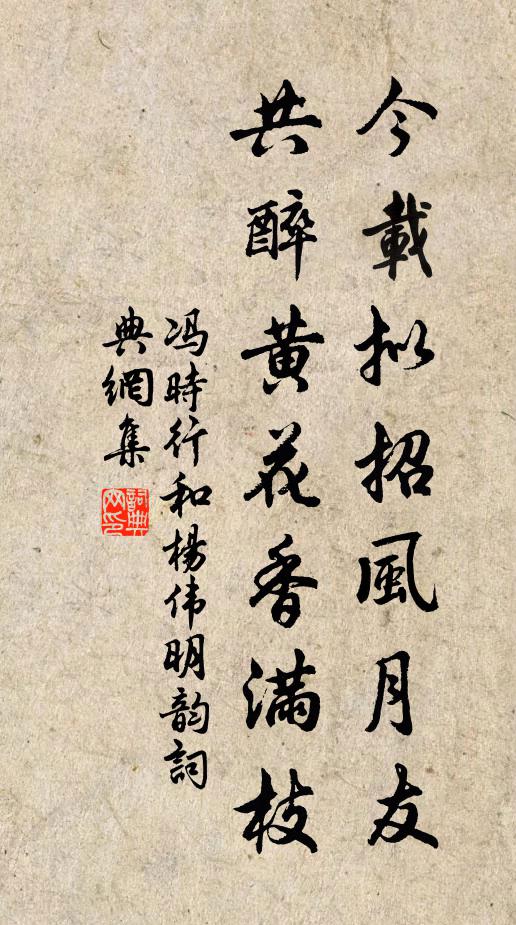 今載拟招風月友
共醉黄花香滿枝
冯時行和楊伟明韵詞
典網集
詞典網印